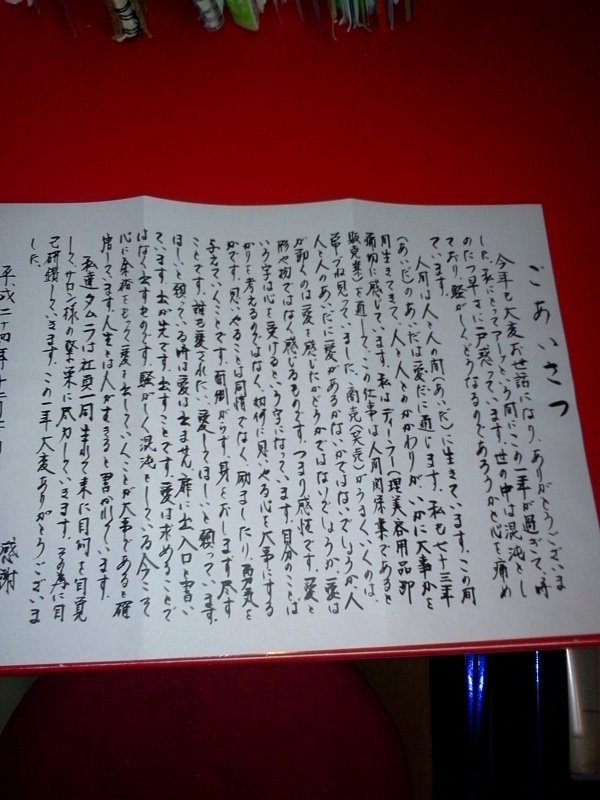 ごあいさつ
今年も大変お世話になり、ありがとうございま
した。私にとってアーッという間にこの一年が過ぎて、時
のたつ早さに戸惑っています。世の中は混沌とし
ており、騒がしく、どうなるのであろうかと心を痛め
ています。
人間は人と人の間(あいだ)に生きています。この間
(あいだ)のあいだは愛だに通じます。私も七十三年
間生きてきて、人と人とのかかわりが、いかに大事かを
痛切に感じています。私はディーラー(理美容用品卸
販売業)を通して、この仕事は人間関係業であると
常づね見っていました。商売(笑売)がうまくいくのは、
人と人のあいだに愛があるかないかではないでしょうか。人
が動くのは愛を感じたかどうかではないでしょうか。愛は
形や物ではなく感じるものです。つまり感性です。愛と
いう字は心を受けるという字になっています。自分のことば
かりを考えるのではなく、如何に思いやる心を大事にする
かです。思いやることは同情でなく、励ましたり、勇気を
与えていくことです。面倒がらず、身をおしまず尽す
ことです。誰も愛されたい、愛してほしいと願っています。
ほしいと願っている時は愛は出ません。扉に出入口と書い
ています。出が先です。出すことです。愛は求めることで
はなく出すものです。騒がしく混沌としている今こそ
心に余裕をもって愛を出していくことが大事であると確
信しています。人生とは人が生きると書かれています。
私達タムラは社員一同生れて来た目的を自覚
して、サロン様の繁栄に尽力していきます。その為に自
己研鑽していきます。この一年大変ありがとうございま
した。
平成二十四年十二月
感謝